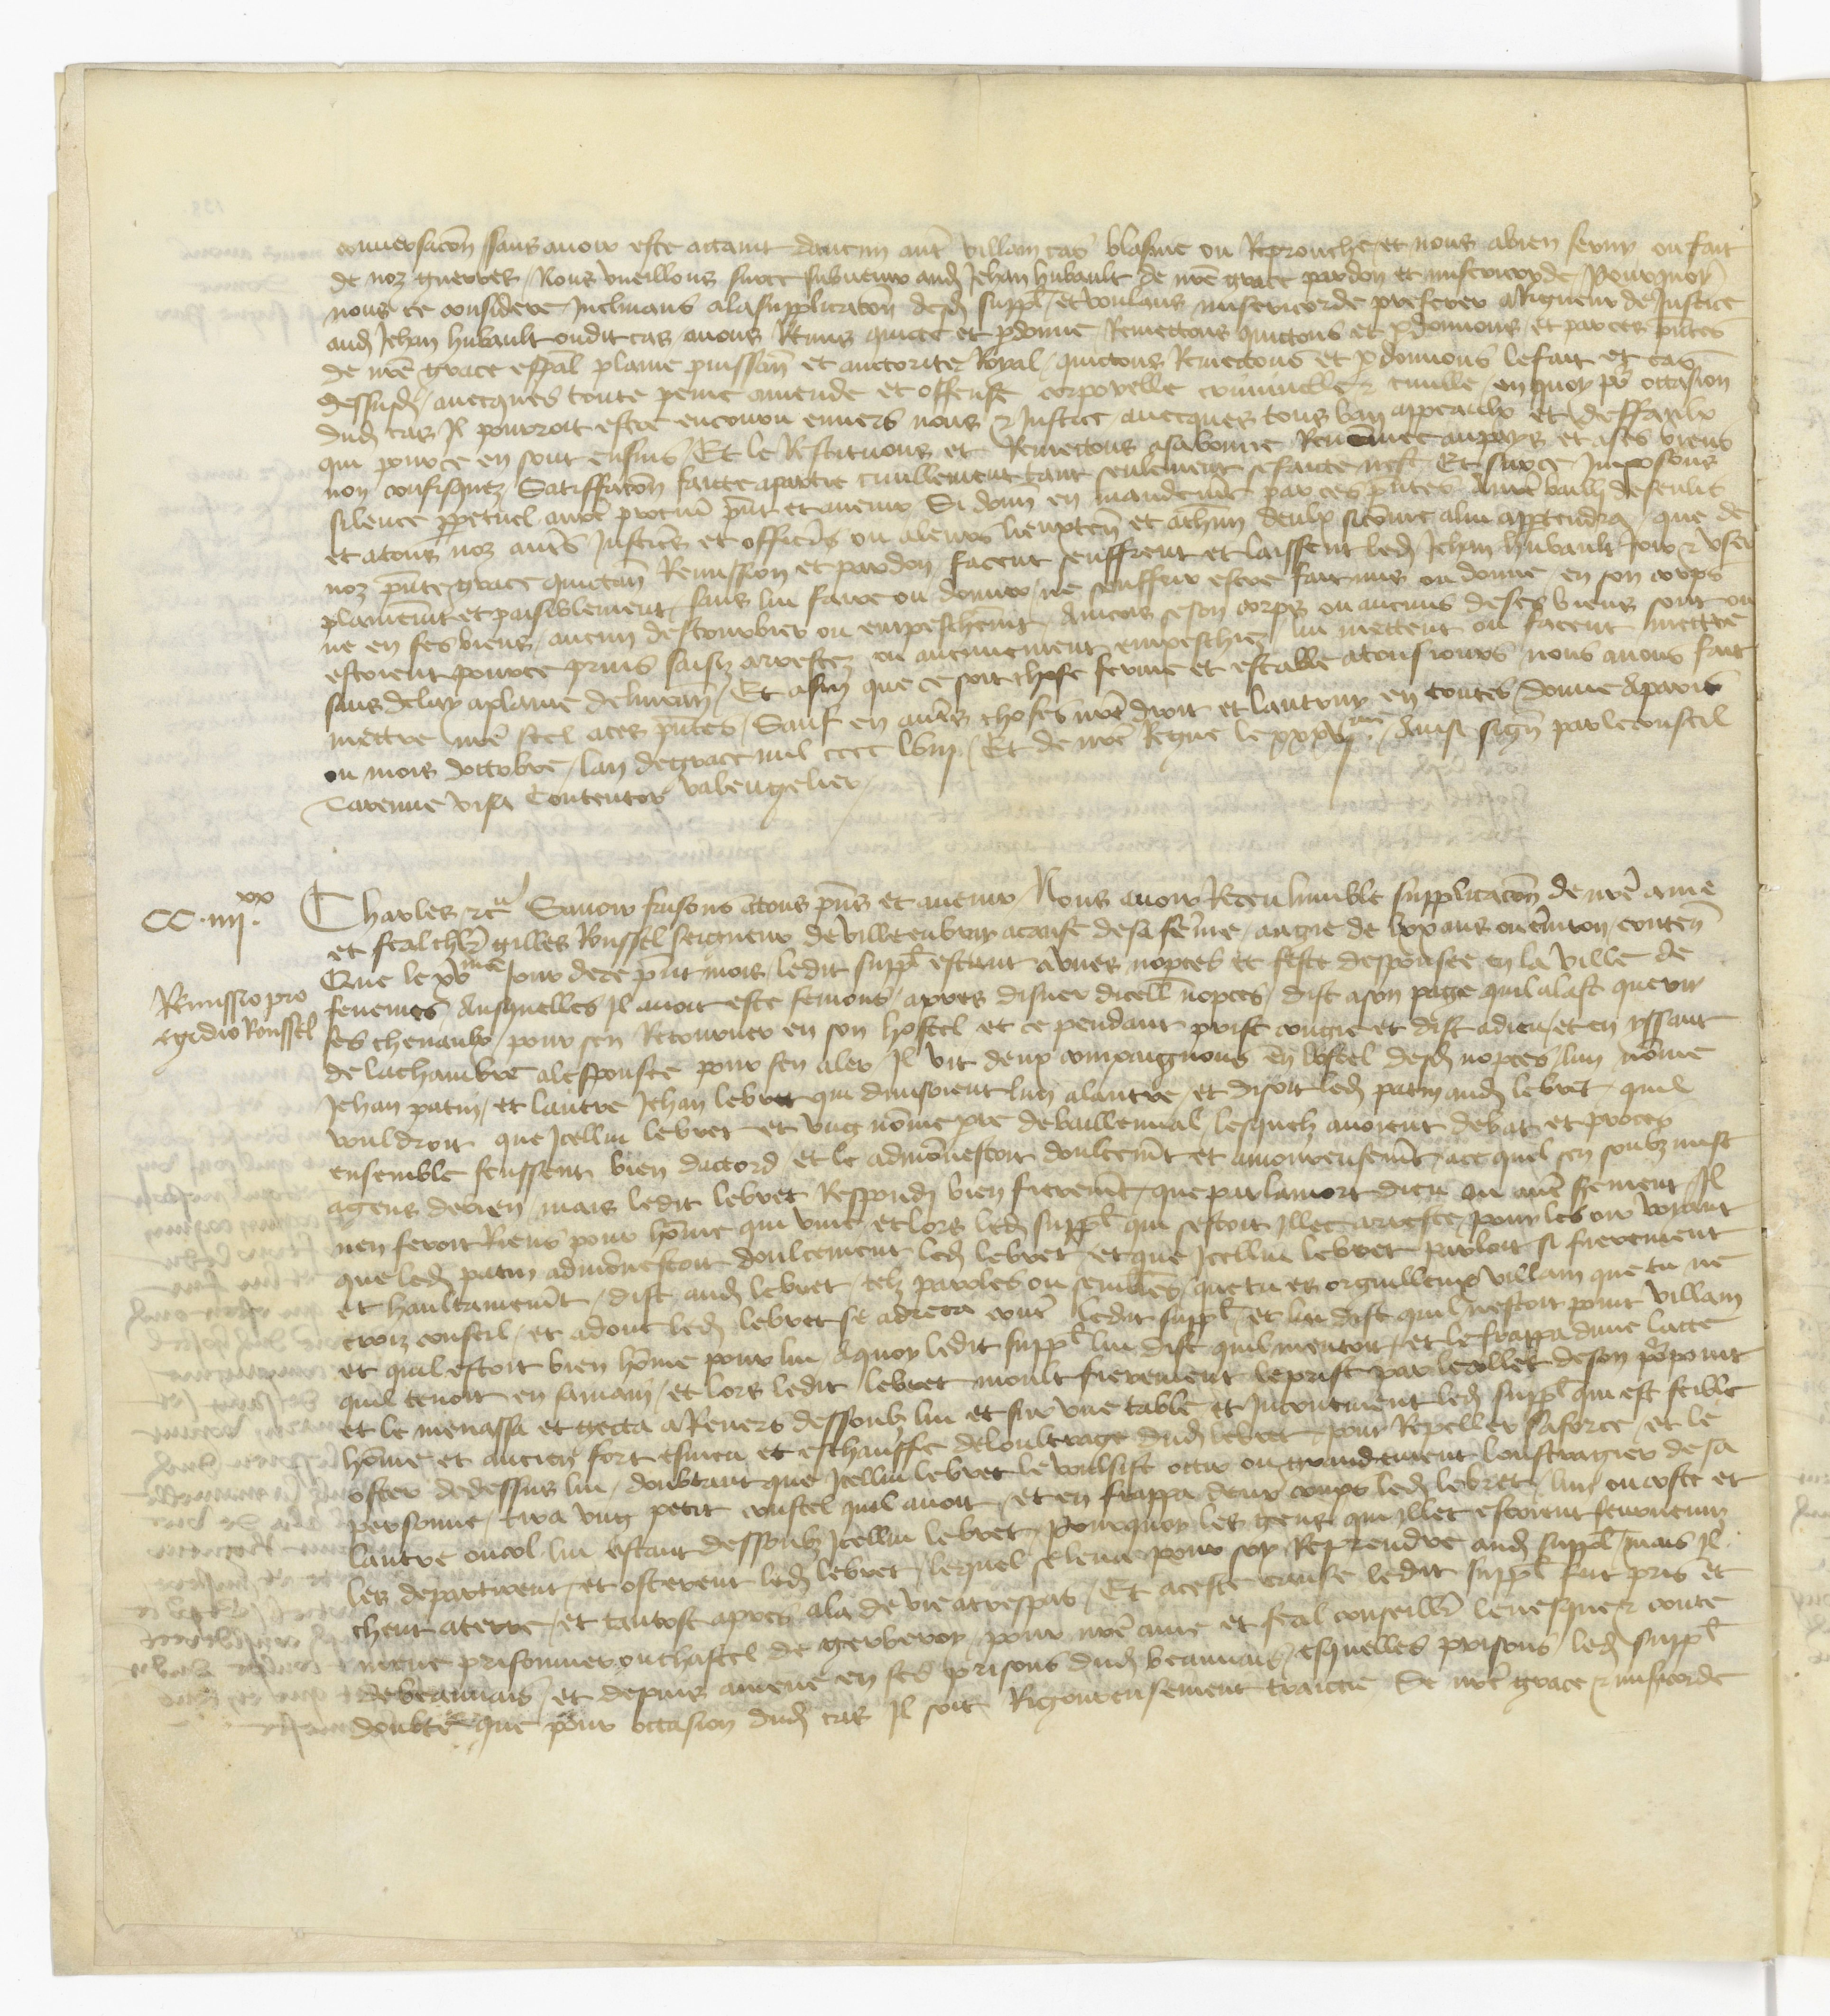 conversacon sans avoir este actaint daucun autre villain cas blasme ou Reprouche et nous a bien servy ou fait
de noz guerres Nous vueillons sur ce subvenir aud Jehan hubault de nre grace pardon et misericorde Pourquoy
nous ce considere Inclinans a la supplicacon dud suppl et voulans misericorde preferer a Rigueur de Justice
aud Jehan hubault oudit cas avons Remis quicte et pdonne Remectons quictons et pdonnons et par ces pntes
de nre grace espal plaine puissan et auctorite Royal quictons Remectons et pdonnons le fait et cas
dessusd avecques toute peine amende et offense corporelle criminelle et civille en quoy pr occasion
dud cas Il pourroit estre encouru envers nous et Justice avecques tous ban appeaulx et deffaulx
qui pour ce en sont ensuis Et le Restituons et Remectons a sa bonne Renommee au pays et a ses biens
non confisquez Satiffacon faicte a partie civillement tant seulement se faicte nest Et sur ce Imposons
silence ppetuel a nre procur pnt et avenir Si donn en mandemt par ces pntes a nre bailli de senlis
et a tous noz autres Justiciers et officiers ou a leurs lieuxten et a chun deulx si come a lui apptendra que de
noz pnte grace quictan Remission et pardon facent seuffrent et laissent led Jehan hubault Joir et user
plainemt et paisiblement sans lui faire ou donner ne souffrir estre fait mis ou donne en son corps
ne en ses biens aucun destourbier ou empeschemt Aincois se son corps ou aucuns de ses biens sont ou
estoient pour ce prins saisiz arrestez ou aucunement empeschiez lui mettent ou facent mettre
sans delay a plaine delivran Et afin que ce soit chose ferme et estable a tousjours nous avons fait
mettre nre seel a ces pntes Sauf en autres choses nre droit et lautruy en toutes Donne A paris
ou mois doctobre lan de grace mil cccc lviii Et de nre Regne le xxxvime Ainsi sign par le conseil
Varenne visa Contentor valengelier
CC iiii xx
Charles etc Savoir faisons a tous pns et avenir Nous avoir Receu lumble supplicacon de nre ame
et feal chlr gilles Roussel seigneur de villeenbray a cause de sa feme aagie de lxx ans ou environ conten
Remissio pro
egidio Roussel
Que le xvme Jour de ce pnt mois ledit suppl estant a unes nopces et feste desponsee en la ville de
senemes Ausquelles Il avoit este semons apres disner dicell nopces dist a son page quil alast querir
ses chevaulx pour sen Retourner en son hostel et ce pendant prist congie et dist adieu et en yssant
de la chambre a lespousee pour sen aler Il vit deux compaignons en lostel desd nopces lun nomme
Jehan patin et lautre Jehan lebret qui divisoient lun a lautre et disoit led patin aud lebret quil
vouldroit que Icellui lebret et ung nomme pre devaillenval lesquelz avoient debat et proces
ensemble feussent bien daccord et le admonnestoit doulcemt et amoureusemt a ce quil sen soubzmist
a gens de bien mais ledit lebret Respondi bien fieremt que par la mort dieu ou autre serment Il
nen feroit Riens pour homme qui vive et lors led suppl qui sestoit illec arreste pour les oir voyant
que led patin admonnestoit doulcement led lebret et que Icellui lebret parloit si fierement
et haultainemt dist aud lebret telz paroles ou sembles que tu es orguilleux villain que tu ne
croiz conseil et adonc led lebret se adreca contre ledit suppl et lui dist quil nestoit point villain
et quil estoit bien homme pour lui A quoy ledit suppl lui dist quil mentoit et le frappa dune latte
quil tenoit en sa main et lors ledit lebret moult fierement le prist par le collet de son pourpoint
et le menassa et gecta a Revers dessoubz lui et sur une table et Incontinent led suppl qui est feible
homme et ancien fort esmeu et eschauffe de loultrage dud lebret pour Repeller sa force et le
oster de dessus lui doubtant que Icellui lebret le voulsist occir ou grandement oultragier de sa
personne tira ung petit coustel quil avoit et en frappa deux coups led lebret lun ou coste et
lautre ou col lui estant dessoubz Icellui lebret Pourquoy les gens qui illec estoient survenuz
les departirent et osterent led lebret lequel se leva pour soy Reprendre aud suppl mais Il
cheut a terre et tantost apres ala de vie a trespas Et a ceste cause ledit suppl fut pris et
mene prisonnier ou chastel de gerberoy pour nre ame et feal conseillr levesque et conte
de beauvais et depuis amene en ses prisons dud beauvais esquelles prisons led suppl
doubte que pour occasion dud cas Il soit Rigoureusement traictie Se nre grace et misicorde